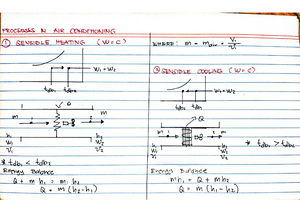 PROCESSES IN AIR CONDITIONING
① SENSIBLE HEATING (W=C)
W1 = W2
tdb1 tdb2
Q
m 1 2 m
h1 h2
W1 W2
v1 v2
* tdb1 < tdb2
Energy Balance
Q + m h1 = m h2
Q = m (h2-h1)
WHERE: m = mair = V1/v1
② SENSIBLE COOLING (W=C)
W1 = W2
tdb2 tdb1
Q
m 1 2 m
h1 h2
W1 W2
v1 v2
* tdb1 > tdb2
Energy Balance
mh1 = Q + mh2
Q = m (h1-h2)